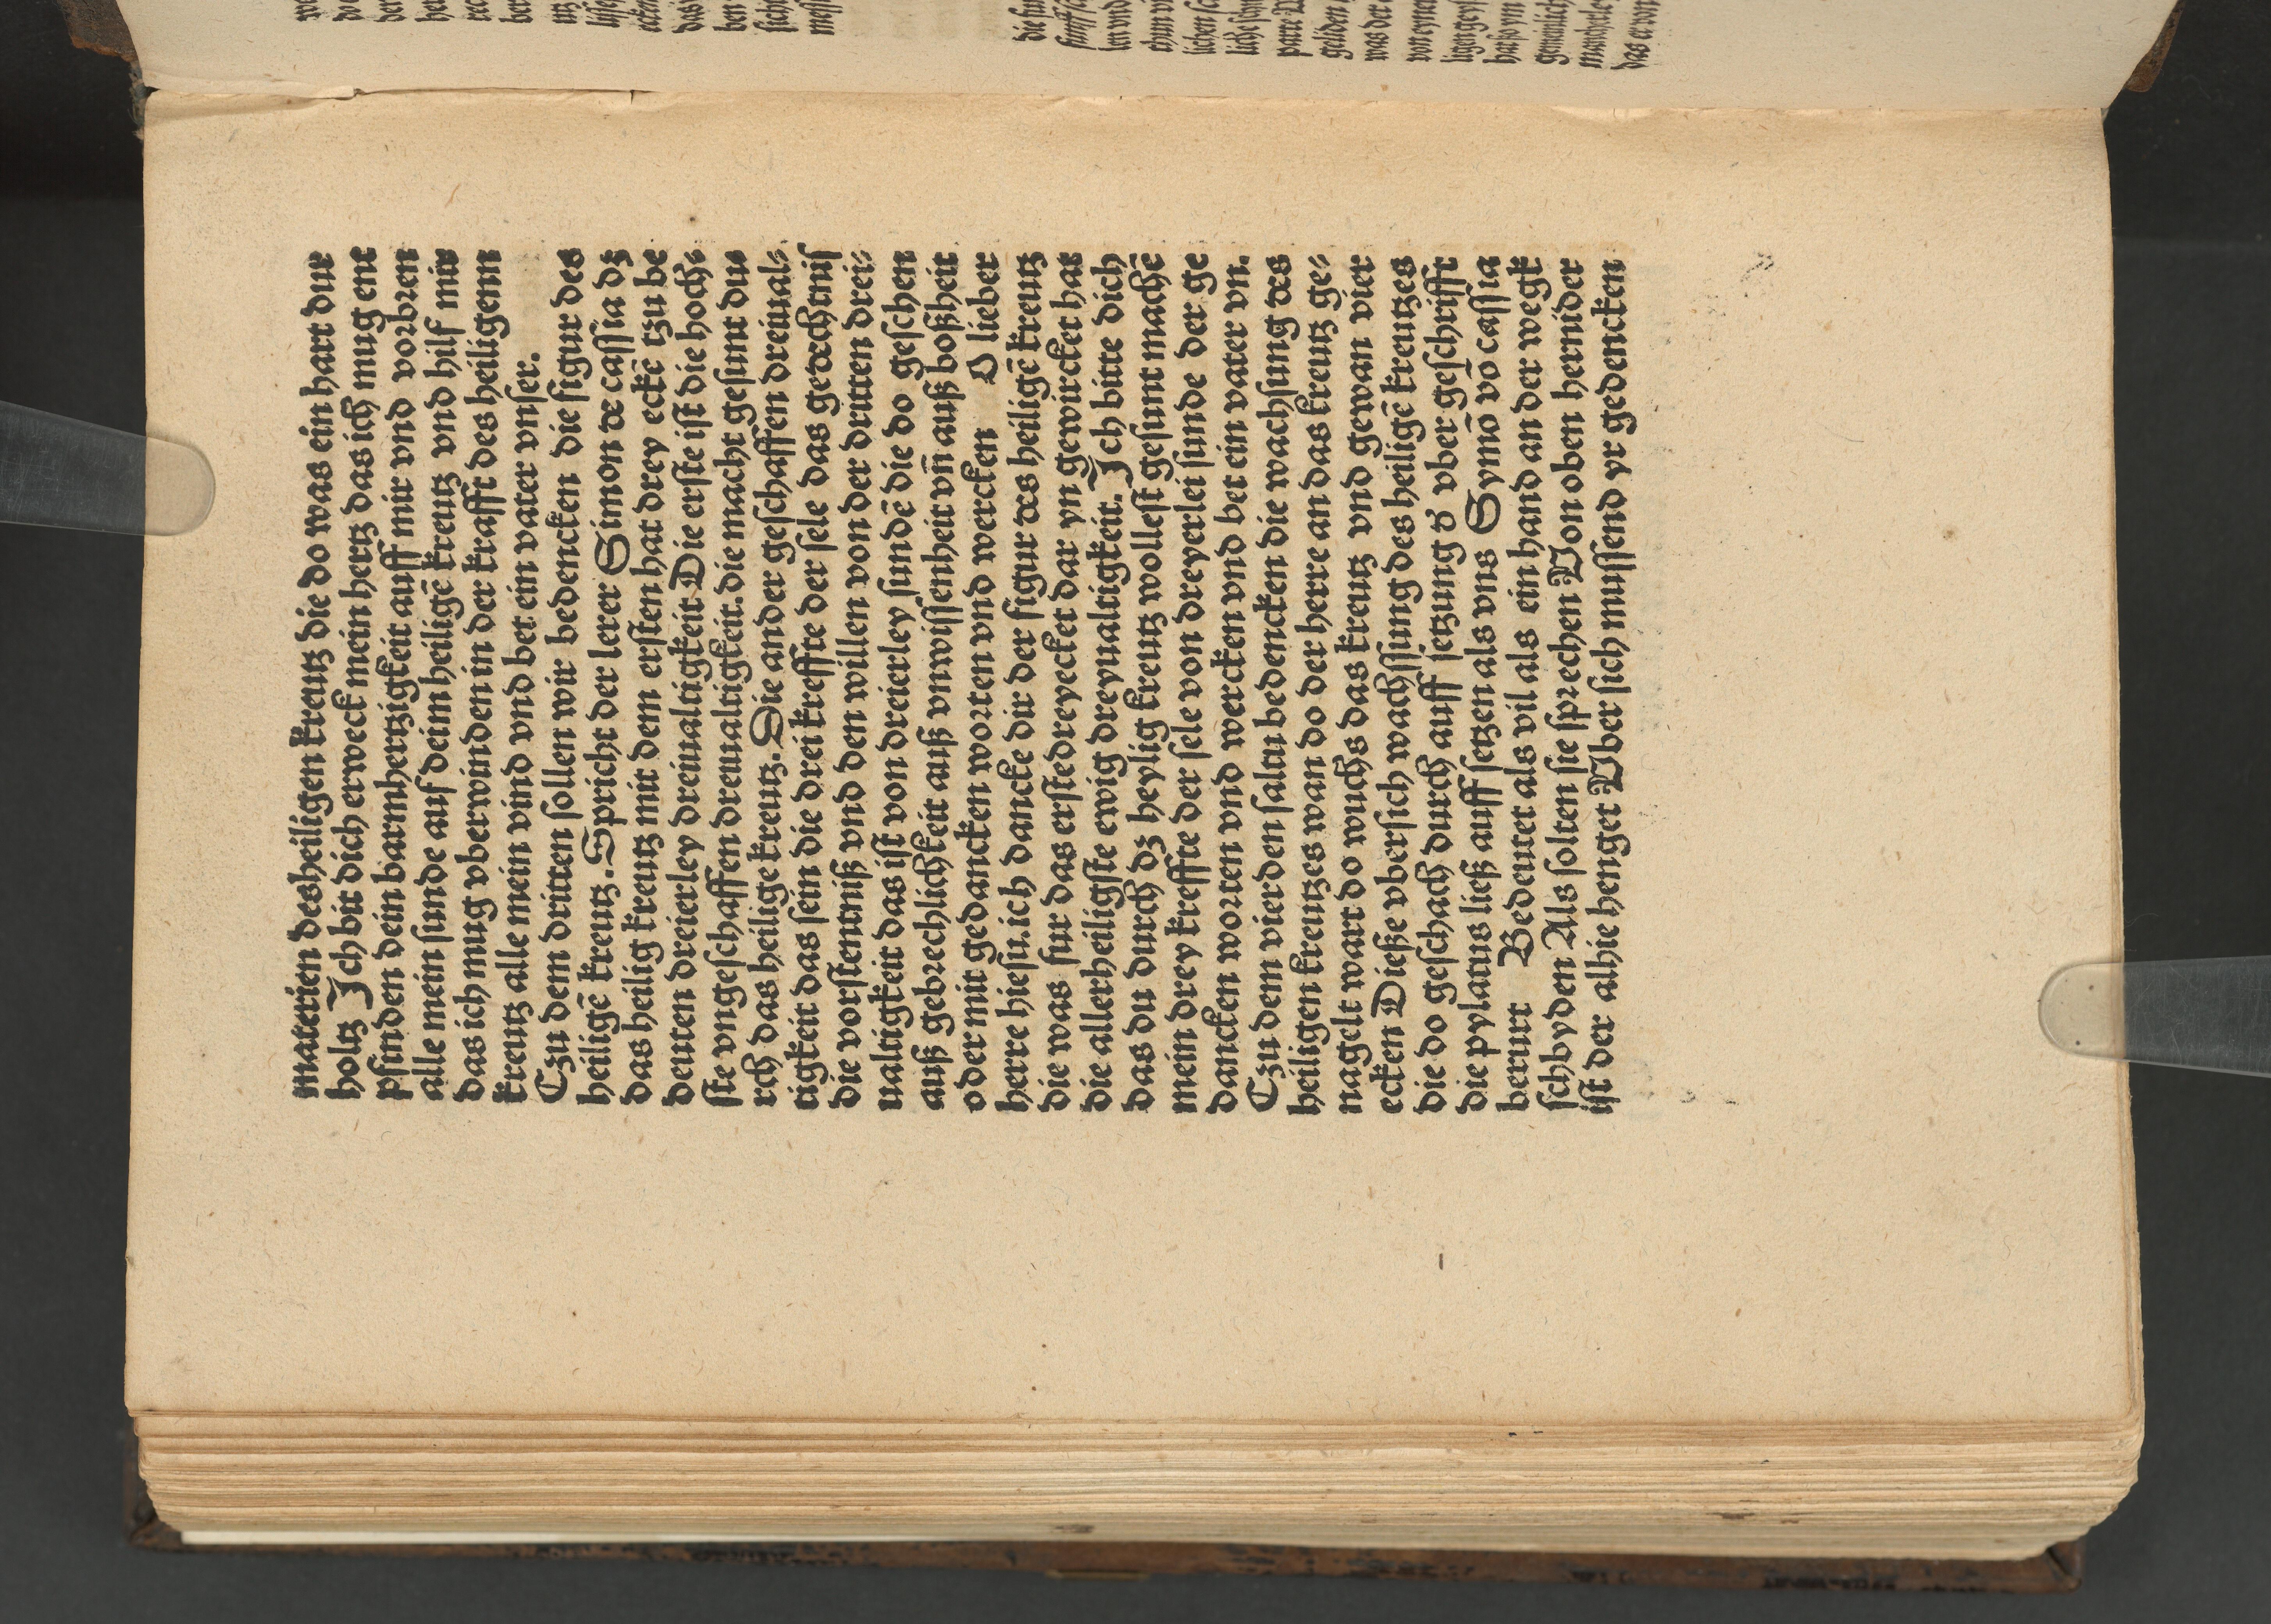 materien des heiligen kreutz die do was ein hart dur
holtz Ich bit dich erweck mein hertz das ich mug ent
pfinden dein barmhertzigkeit auff mir vnd vorbren
alle mein sunde auf deim heiligē kreutz vnd hilf mir
das ich mug vberwinden in der krafft des heiligenn
kreutz alle mein vind vnd bet ein vater vnser.
Czu dem dritten sollen wir bedencken die figur des
heiligē kreutz. Spricht der lerer Simon de cassia dz
das heilig kreutz mit dem ersten hat drey eckē tzu be
deuten dreierley dreiualtigkeit Die erste ist die hoch⸗
ste vngeschaffen dreualtigkeit. die macht gesunt du
rch das heilige kreutz. Die ander geschaffen dreiual⸗
tigkeit das sein die drei kreffte der sele das gedechtniſ
die vorstentniß vnd den willen von der dritten drei⸗
ualtigkeit das ist von dreierley sundē die do geschen
auß gebrechlichkeit auß vnwissenheit vn̄ auß boßheit
oder mit gedancken worten vnd wercken O lieber
herre hiesu. ich dancke dir der figur des heiligē kreutz
die was fur das erste dreyecket dar yn gewircket hat
die allerheiligste ewig dreyualtigkeit. Ich bitte dich
das du durch dz heylig kreutz wollest gesunt machē
mein drey kreffte der sele von dreyerlei sunde der ge
dancken worten vnd wercken vnd bet ein vater vn.
Czu dem vierden saltu bedencken die wachsung des
heiligen kreutzes wan do der herre an das kreutz ge⸗
nagelt wart do wuchs das kreutz vnd gewan vier
ecken Dieße vbersich wachssung des heiligē kreutzes
die do geschach durch auff setzung d' vber geschrifft
die pylatus ließ auff setzen als vns Symō vō cassia
berurt Bedeutet als vil als ein hand an der wegk
schbyden Als solten sie sprechen Von oben hernider
ist der alhie henget Vber sich mussend yr gedencken